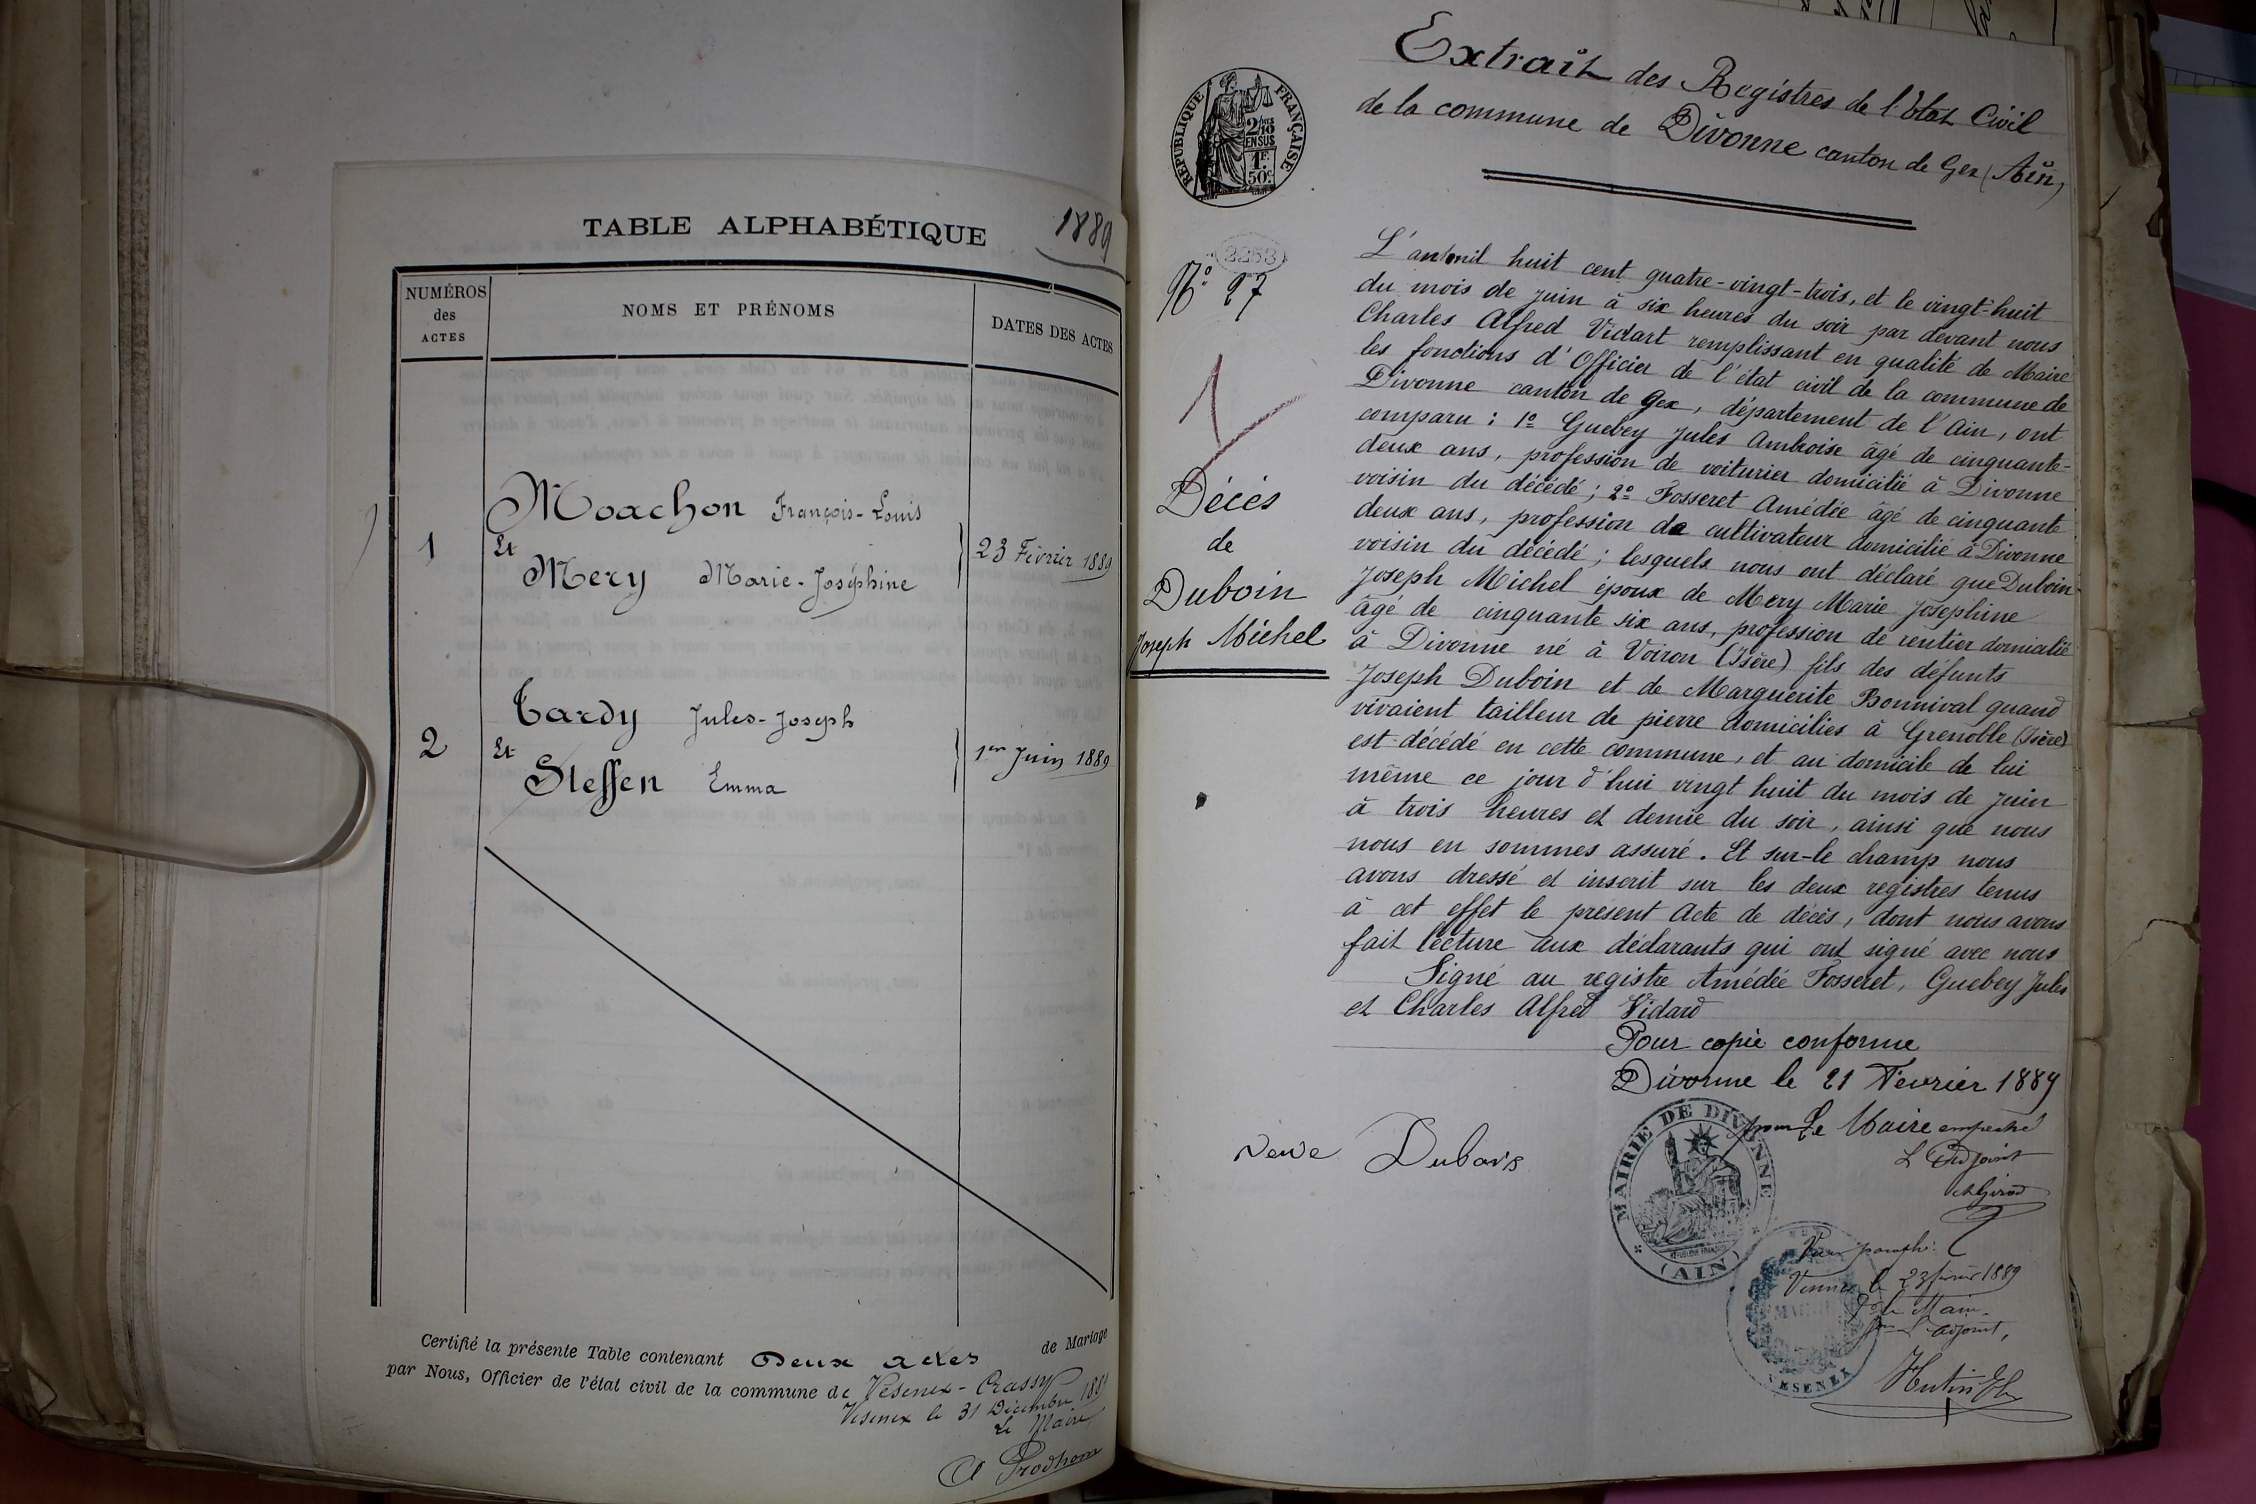 TABLE ALPHABÉTIQUE
1889
NUMÉROS
des
ACTES
NOMS ET PRÉNOMS
DATES DES ACTES
1
Moachon François-Louis
Et
Mery Marie-Joséphine
23 Février 1889
2
Tardy Jules-Joseph
Et
Steffen Emma
1er Juin 1889
Certifié la présente Table contenant Deux actes de Mariage
par Nous, Officier de l'état civil de la commune de Vésenex-Crassy
Vésenex le 31 Décembre 1889
Le Maire
Prodhom
Extrait des Registres de l'Etat Civil
de la commune de Divonne canton de Gex (Ain)
RÉPUBLIQUE FRANÇAISE
2/10
EN SUS
1F.
50c.
2253
No 27
1
Décès
de
Duboin
Joseph Michel
L'an mil huit cent quatre-vingt-trois, et le vingt-huit
du mois de juin à six heures du soir par devant nous
Charles Alfred Vidart remplissant en qualité de Maire
les fonctions d'Officier de l'état civil de la commune de
Divonne canton de Gex, département de l'Ain, ont
comparu : 1o Guebey Jules Ambroise âgé de cinquante-
deux ans, profession de voiturier domicilié à Divonne
voisin du décédé ; 2o Fosseret Amédée âgé de cinquante
deux ans, profession de cultivateur domicilié à Divonne
voisin du décédé ; lesquels nous ont déclaré que Duboin
Joseph Michel époux de Mery Marie Josephine
âgé de cinquante six ans, profession de rentier domicilié
à Divonne né à Voiron (Isère) fils des défunts
Joseph Duboin et de Marguerite Bonnival quand
vivaient tailleur de pierre domiciliés à Grenoble (Isère)
est décédé en cette commune, et au domicile de lui
même ce jour d'hui vingt huit du mois de juin
à trois heures et demie du soir, ainsi que nous
nous en sommes assuré. Et sur-le champ nous
avons dressé et inscrit sur les deux registres tenus
à cet effet le présent Acte de décès, dont nous avons
fait lecture aux déclarants qui ont signé avec nous
Signé au registre Amédée Fosseret, Guebey Jules
et Charles Alfred Vidard
Pour copie conforme
Divonne le 21 Février 1889
pour Le Maire empeché
L'Adjoint
Girod
MAIRIE DE DIVONNE
RÉPUBLIQUE FRANÇAISE
(AIN)
veuve Dubois
23 février 1889
Le Maire
L'adjoint,
Hutin
VESENEX